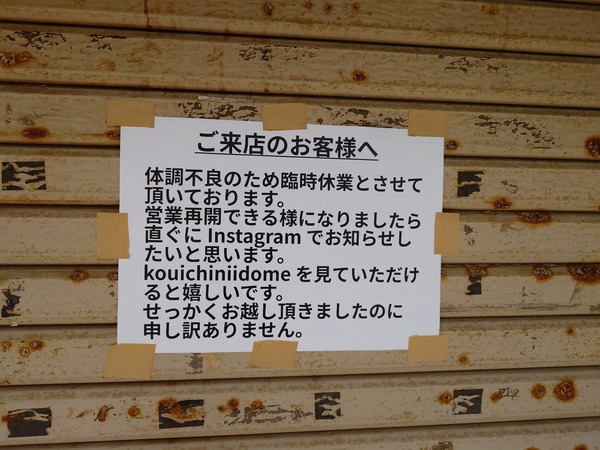 ご来店のお客様へ
体調不良のため臨時休業とさせて
頂いております。
営業再開できる様になりましたら
直ぐに Instagram でお知らせし
たいと思います。
kouichiniidome を見ていただけ
ると嬉しいです。
せっかくお越し頂きましたのに
申し訳ありません。